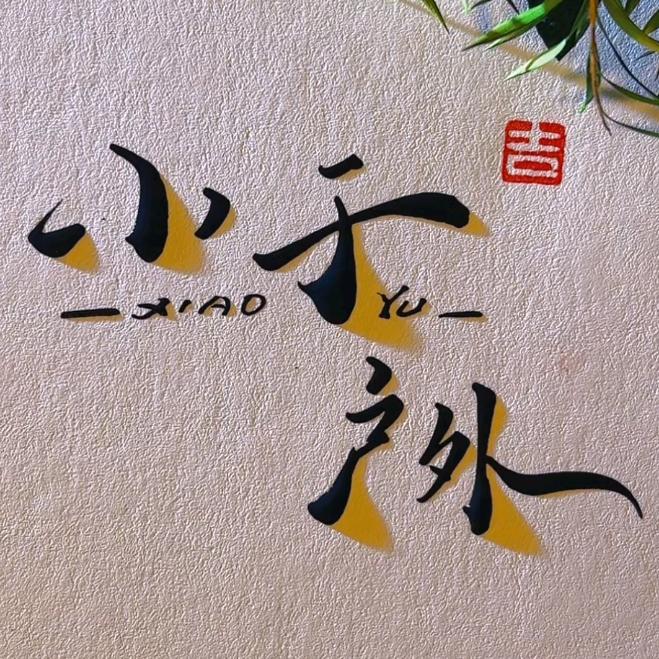 小于
— XIAO YU —
户外
吉